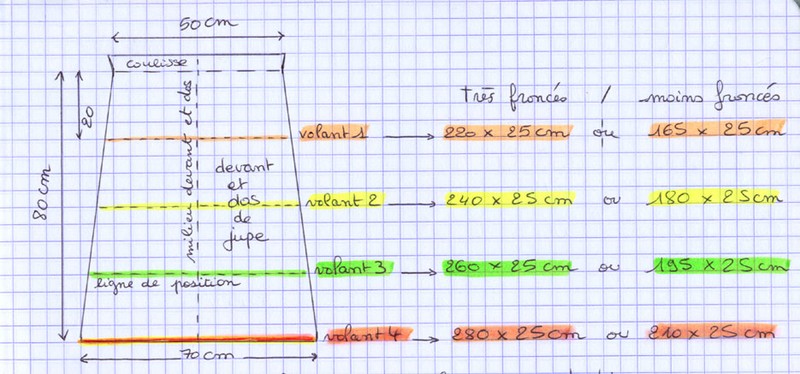 50 cm
coulisse
très froncés / moins froncés
20
volant 1 → 220 x 25 cm ou 165 x 25 cm
milieu devant et dos
devant
et
dos
de
jupe
80 cm
volant 2 → 240 x 25 cm ou 180 x 25 cm
volant 3 → 260 x 25 cm ou 195 x 25 cm
ligne de position
volant 4 → 280 x 25 cm ou 210 x 25 cm
70 cm